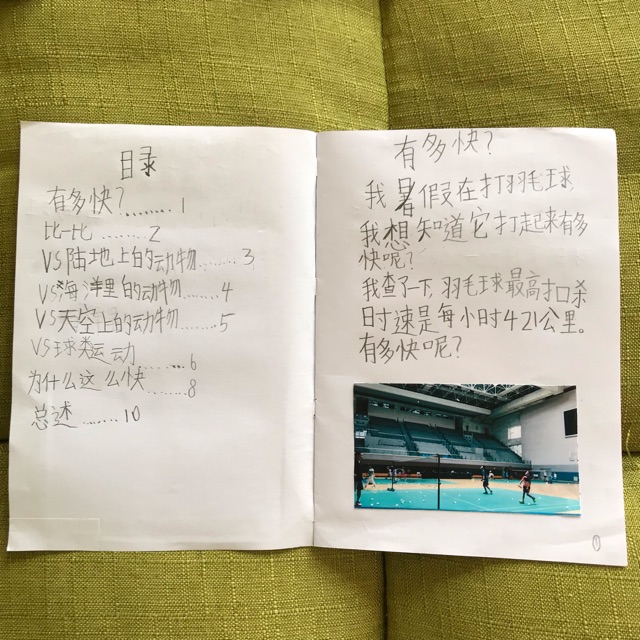 目录
有多快?........1
比一比........2
VS陆地上的动物.......3
VS海洋里的动物.......4
VS天空上的动物.......5
VS球类运动
.......6
为什么这么快......8
总述.......10
有多快?
我暑假在打羽毛球,
我想知道它打起来有多
快呢?
我查了一下,羽毛球最高扣杀
时速是每小时421公里。
有多快呢?
1